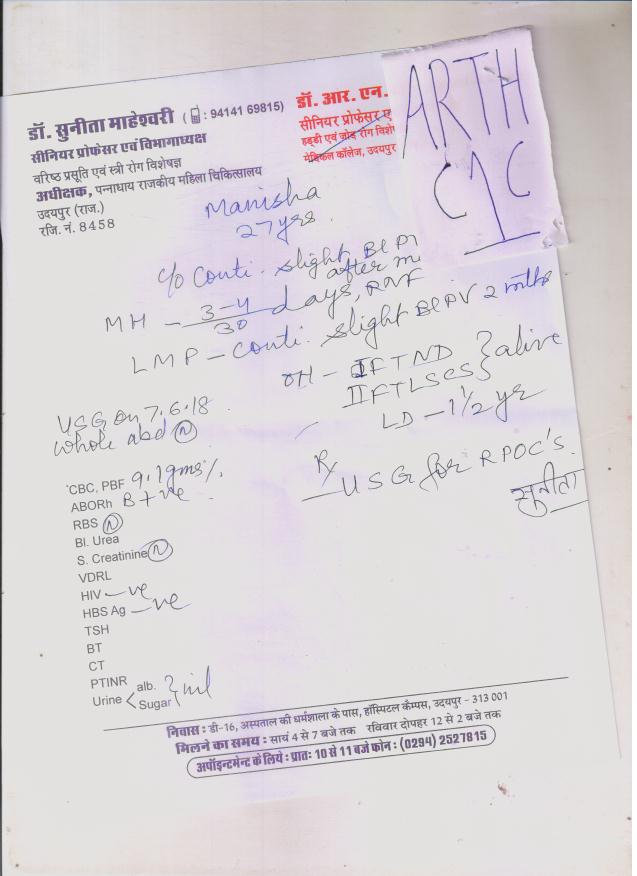 डॉ. सुनीता माहेश्वरी ( : 94141 69815)
सीनियर प्रोफेसर एवं विभागाध्यक्ष
वरिष्ठ प्रसूति एवं स्त्री रोग विशेषज्ञ
अधीक्षक, पन्नाधाय राजकीय महिला चिकित्सालय
उदयपुर (राज.)
रजि. नं. 8458
डॉ. आर. एन.
सीनियर प्रोफेसर ए
हड्डी एवं जोड़ रोग विशे
मेडिकल कॉलेज, उदयपुर
ARTH
Manisha
27yrs.
c/o Conti. slight Bl P
after m
MH - 3-4/30 days, RNF
LMP - Conti. slight Bl PV 2 mths
OH - I FTND } alive
II FTLSCS }
LD - 1 1/2 yr
USG On 7.6.18
whole abd (N)
Rx
USG for RPOC's.
सुनीता
CBC, PBF 9.1gms%
ABORh B+ve
RBS (N)
Bl. Urea
S. Creatinine (N)
VDRL
HIV -ve
HBS Ag -ve
TSH
BT
CT
PTINR
Urine < alb. } nil
Sugar
निवास : डी-16, अस्पताल की धर्मशाला के पास, हॉस्पिटल कैम्पस, उदयपुर - 313 001
मिलने का समय : सायं 4 से 7 बजे तक रविवार दोपहर 12 से 2 बजे तक
अपॉइन्टमेन्ट के लिये : प्रातः 10 से 11 बजे फोन : (0294) 2527815